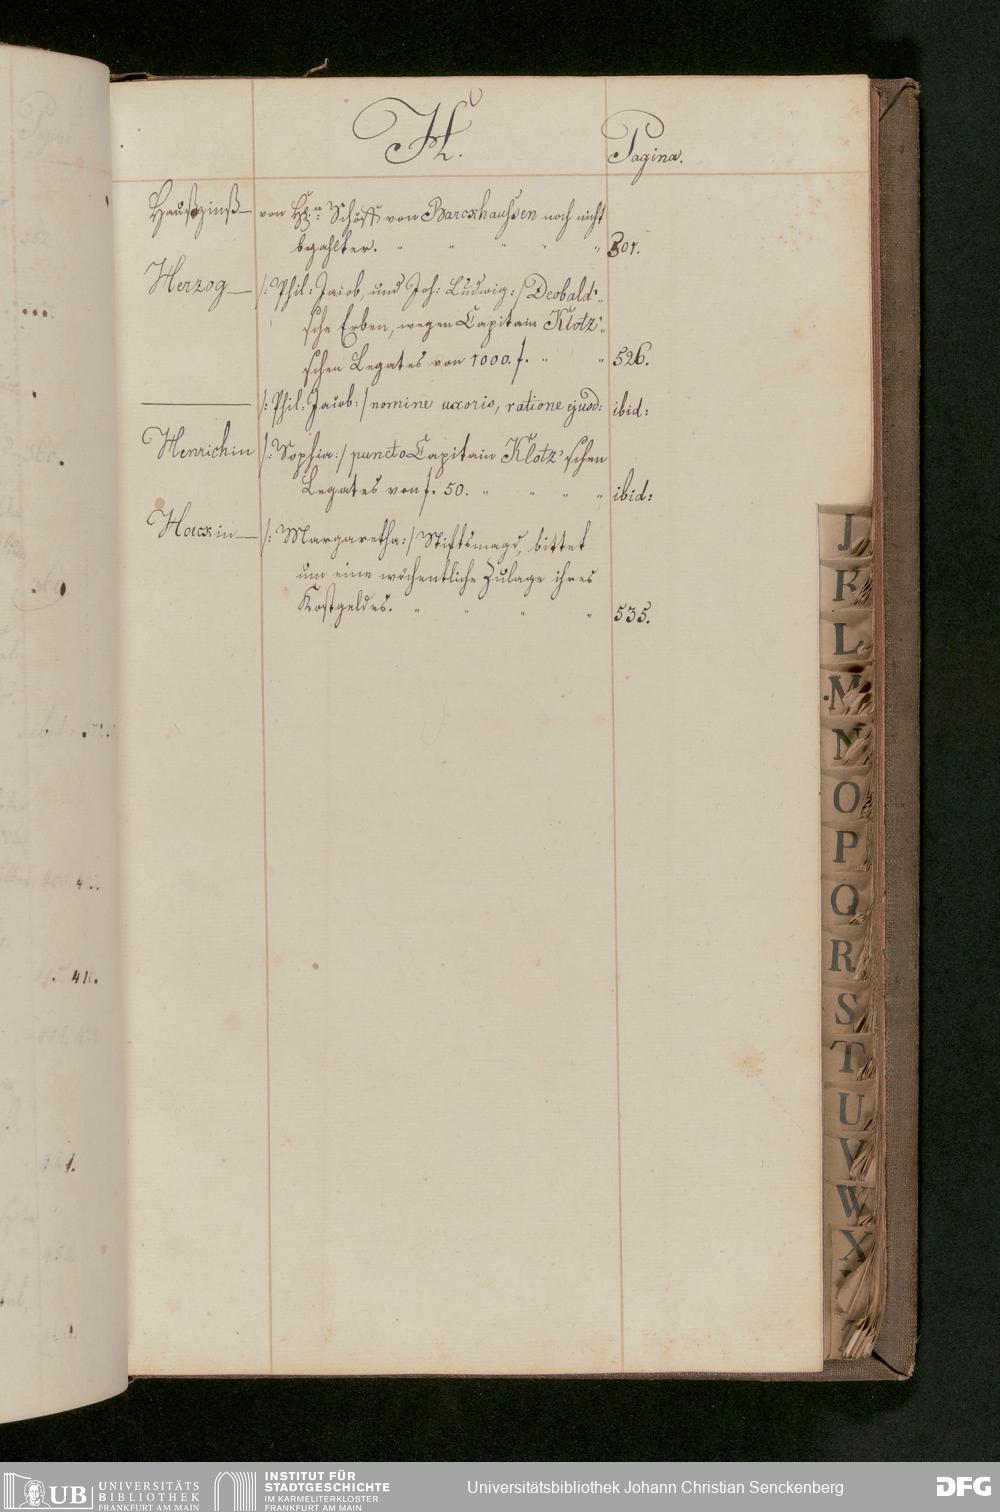 H.
Pagina.
Haußzinß — von Hr.n Schöff von Barckhaußen noch nicht
bezahlter. " " " " " 301.
Herzog — /: Phil: Jacob, und Joh: Ludwig :/ Deobald'-
sche Erben, wegen Capitain Klotz'-
schen Legates von 1000. f. " " 526.
——— /: Phil: Jacob :/ nomine uxoris, ratione ejusd: ibid:
Henrichin /: Sophia :/ puncto Capitain Klotz'schen
Legates von f. 50. " " " " ibid:
Hoeckin — /: Margaretha :/ Stiftsmagd, bittet
um eine wöchentliche Zulage ihres
Kostgeldes. " " " " 535.
J
K
L
M
N
O
P
Q
R
S
T
U
V
W
X
41.
UB UNIVERSITÄTS
BIBLIOTHEK
FRANKFURT AM MAIN
INSTITUT FÜR
STADTGESCHICHTE
IM KARMELITERKLOSTER
FRANKFURT AM MAIN
Universitätsbibliothek Johann Christian Senckenberg
DFG